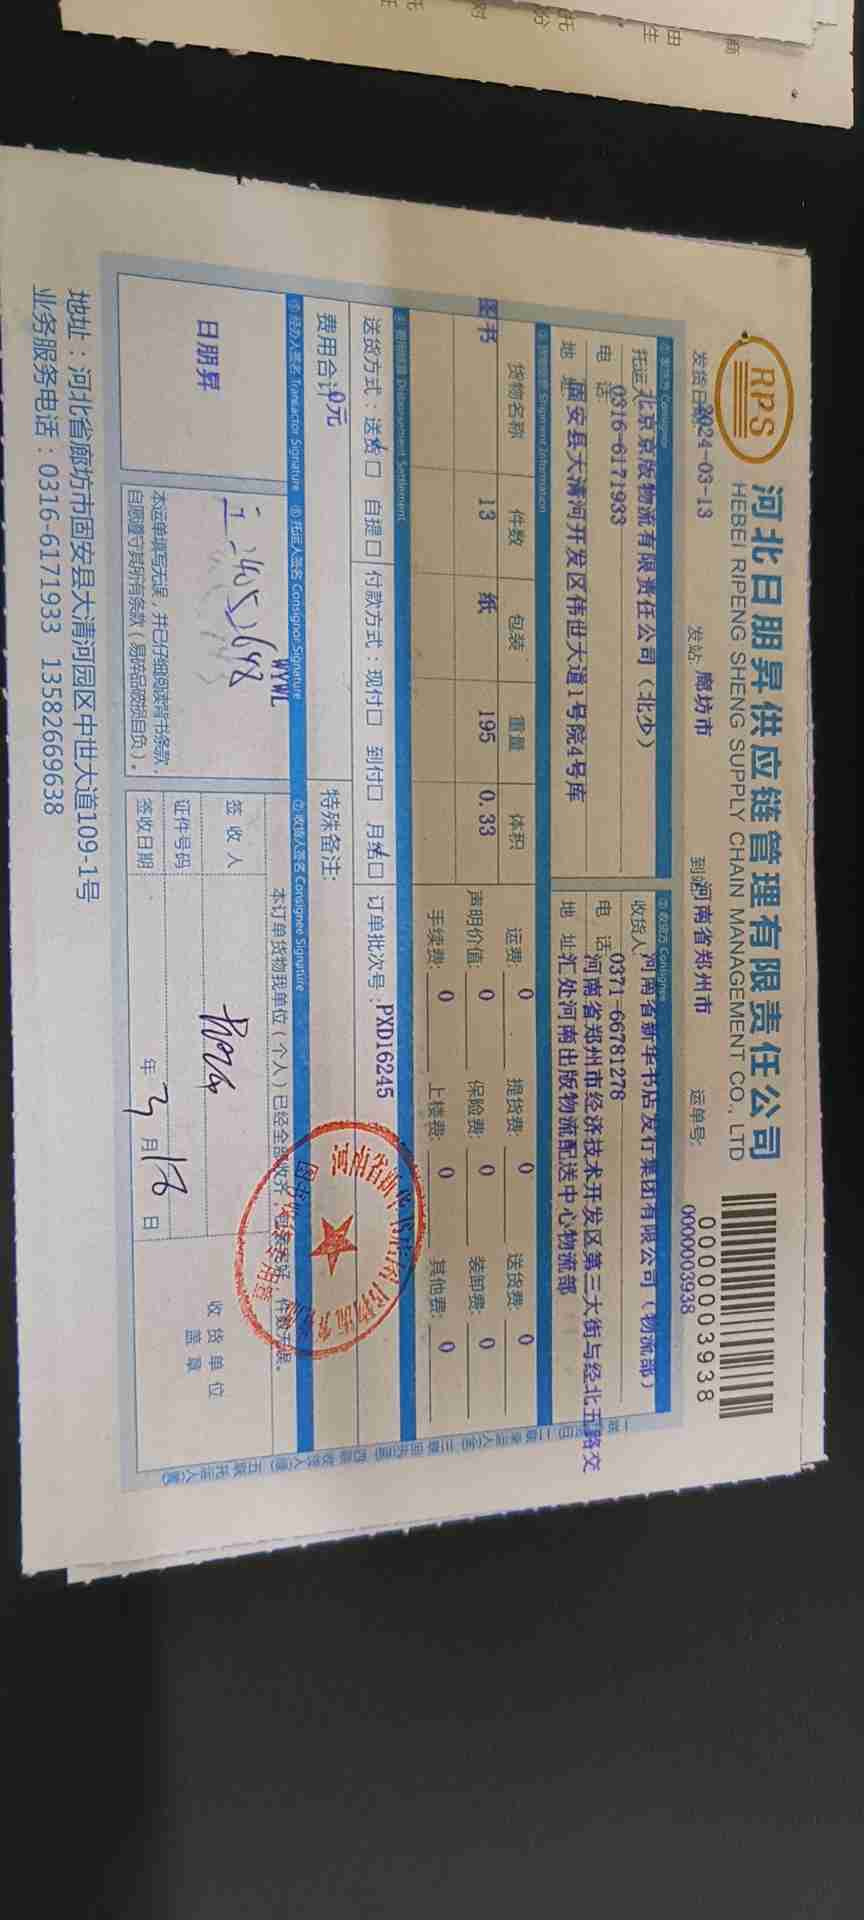 RPS
河北日朋昇供应链管理有限责任公司
HEBEI RIPENG SHENG SUPPLY CHAIN MANAGEMENT CO., LTD
0000003938
发货日期: 2024-03-13 发站: 廊坊市 到站: 河南省郑州市 运单号: 0000003938
① 发货方 Consignor
托运人 北京京版物流有限责任公司（北少）
电 话 0316-6171933
地 址 固安县大清河开发区伟世大道1号院4号库
② 收货方 Consignee
收货人 河南省新华书店发行集团有限公司（物流部）
电 话 0371-66781278
地 址 河南省郑州市经济技术开发区第三大街与经北五路交
汇处河南出版物流配送中心物流部
③ 货物信息 Shipment Information
货物名称 件数 包装 重量 体积
图书 13 纸 195 0.33
运费: 0 提货费: 0 送货费: 0
声明价值: 0 保险费: 0 装卸费: 0
手续费: 0 上楼费: 0 其他费: 0
④ 费用结算 Disbursement Settlement
送货方式：送货 自提 付款方式：现付 到付 月结 订单批次号：PXD16245
费用合计 0元 特殊备注:
⑤ 经办人签名 Transactor Signature ⑥ 托运人签名 Consignor Signature ⑦ 收货人签名 Consignee Signature
日朋昇
WYWL
本运单填写无误，并已仔细阅读背书条款，
自愿遵守其所有条款（易碎品破损自负）。
本订单货物我单位（个人）已经全部收齐，包装完好，件数无误。
签 收 人
证件号码
签收日期 年 3 月 18 日
收 货 单 位
盖 章
地址：河北省廊坊市固安县大清河园区中世大道109-1号
业务服务电话：0316-6171933 13582669638